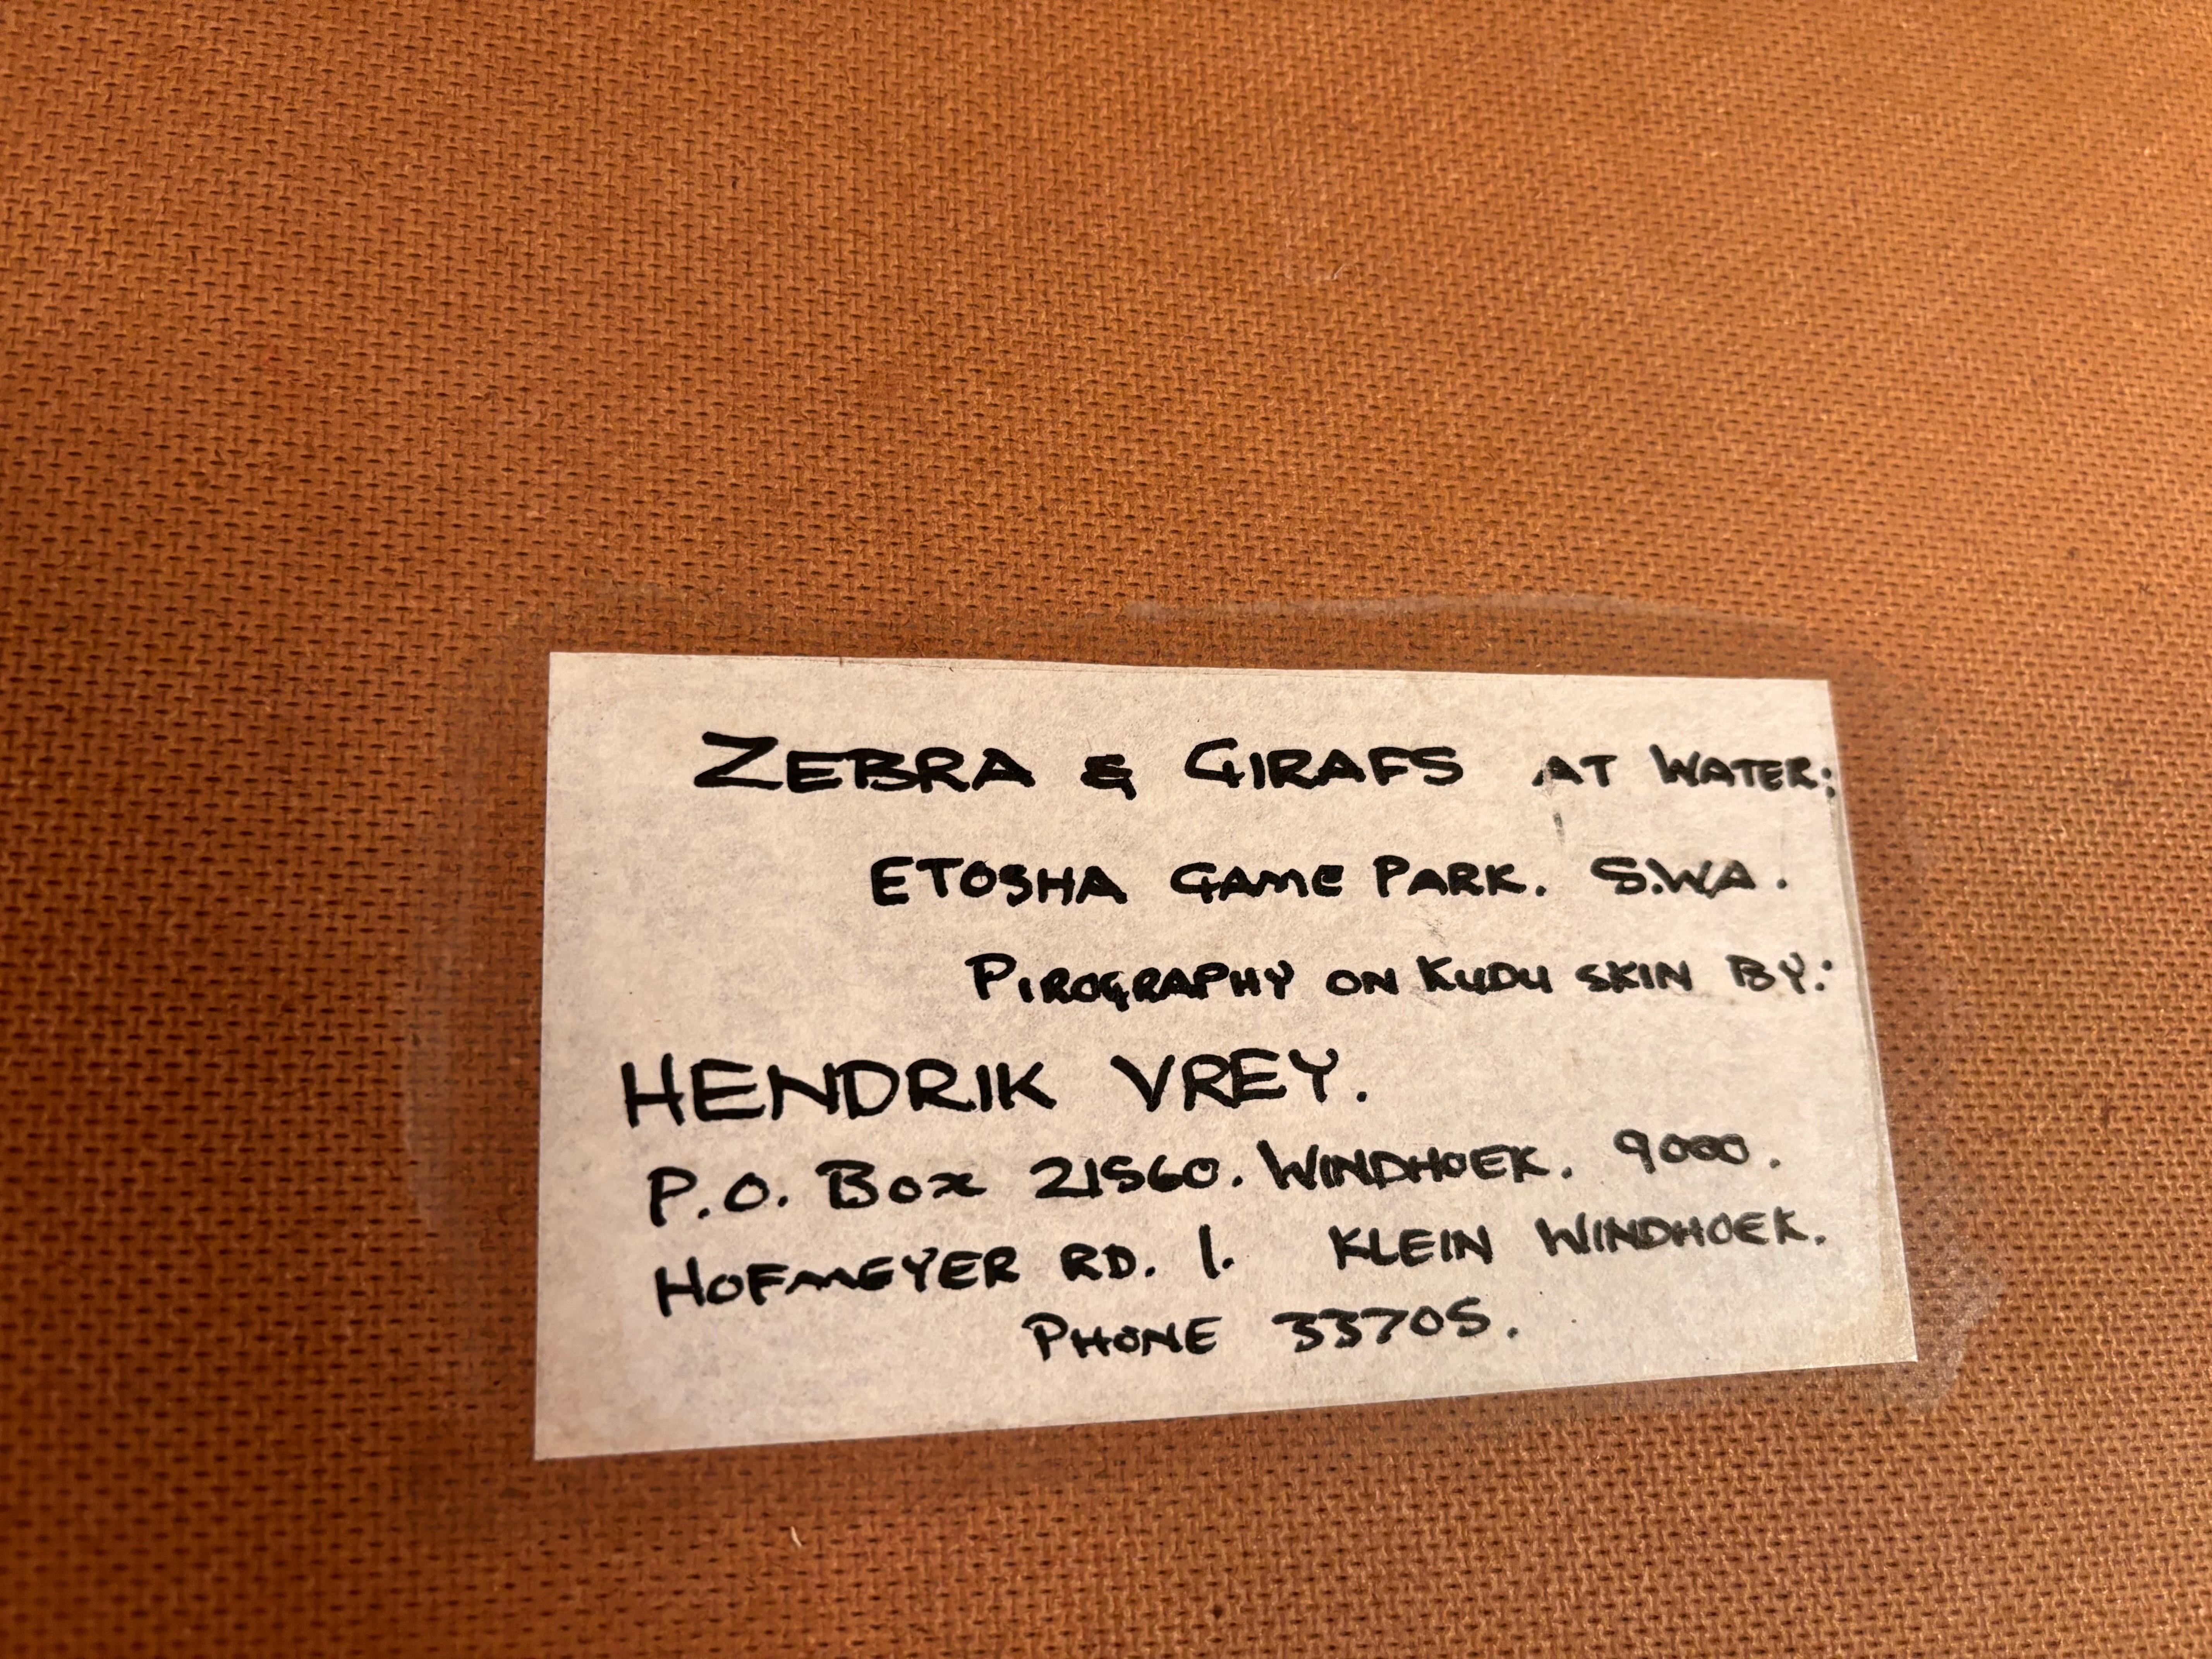 ZEBRA & GIRAFS AT WATER;
ETOSHA GAME PARK. S.W.A.
PIROGRAPHY ON KUDU SKIN BY:
HENDRIK VREY.
P.O. BOX 21560. WINDHOEK. 9000.
HOFMEYER RD. 1. KLEIN WINDHOEK.
PHONE 33705.